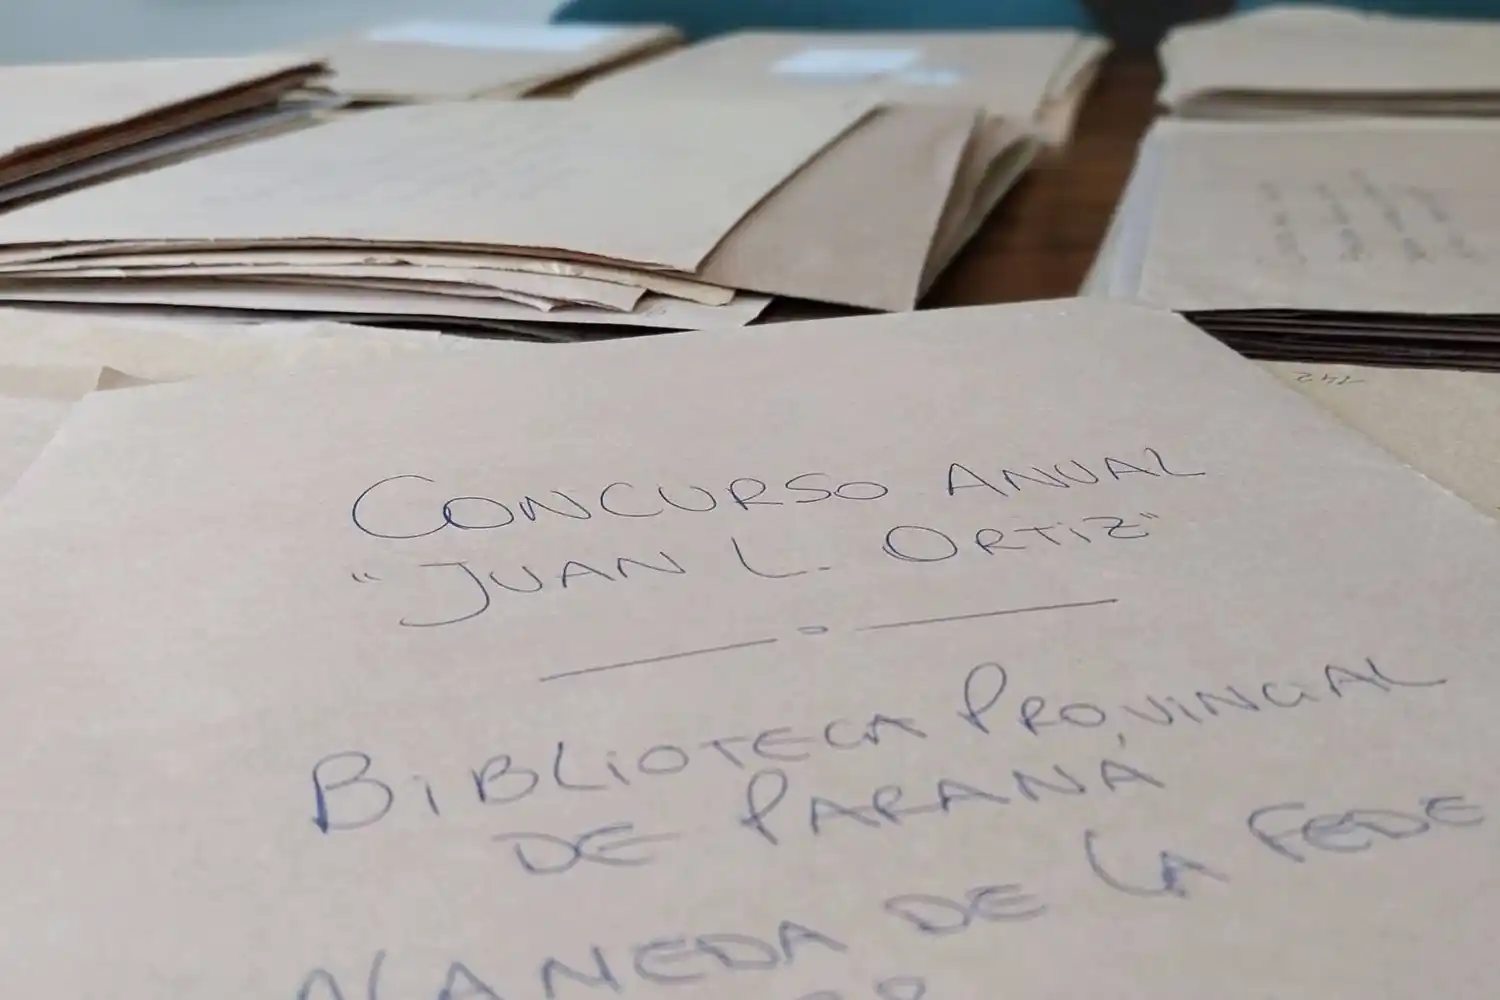 CONCURSO ANUAL
"JUAN L. ORTIZ"
BIBLIOTECA PROVINCIAL
DE PARANÁ
ALAMEDA DE LA FEDE
242